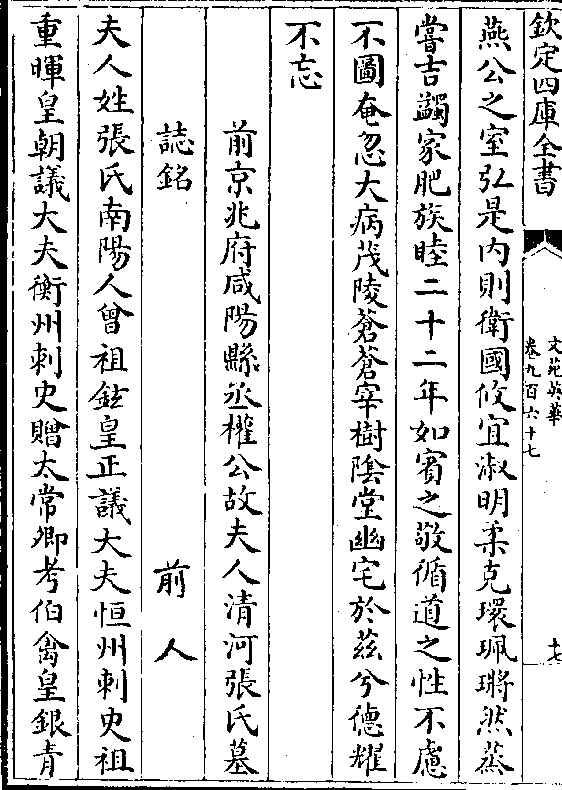 欽定四庫全書
文苑英華
卷九百六十七
十七
燕公之室弘是内則衛國攸宜淑明柔克環珮瑲然蒸
嘗吉蠲家肥族睦二十二年如賓之敬循道之性不慮
不圖奄忽大病茂陵蒼蒼宰樹陰堂幽宅於兹兮德耀
不忘
前京兆府咸陽縣丞權公故夫人清河張氏墓
誌銘
前人
夫人姓張氏南陽人曾祖鉉皇正議大夫恒州刺史祖
重暉皇朝議大夫衡州刺史贈太常卿考伯禽皇銀青